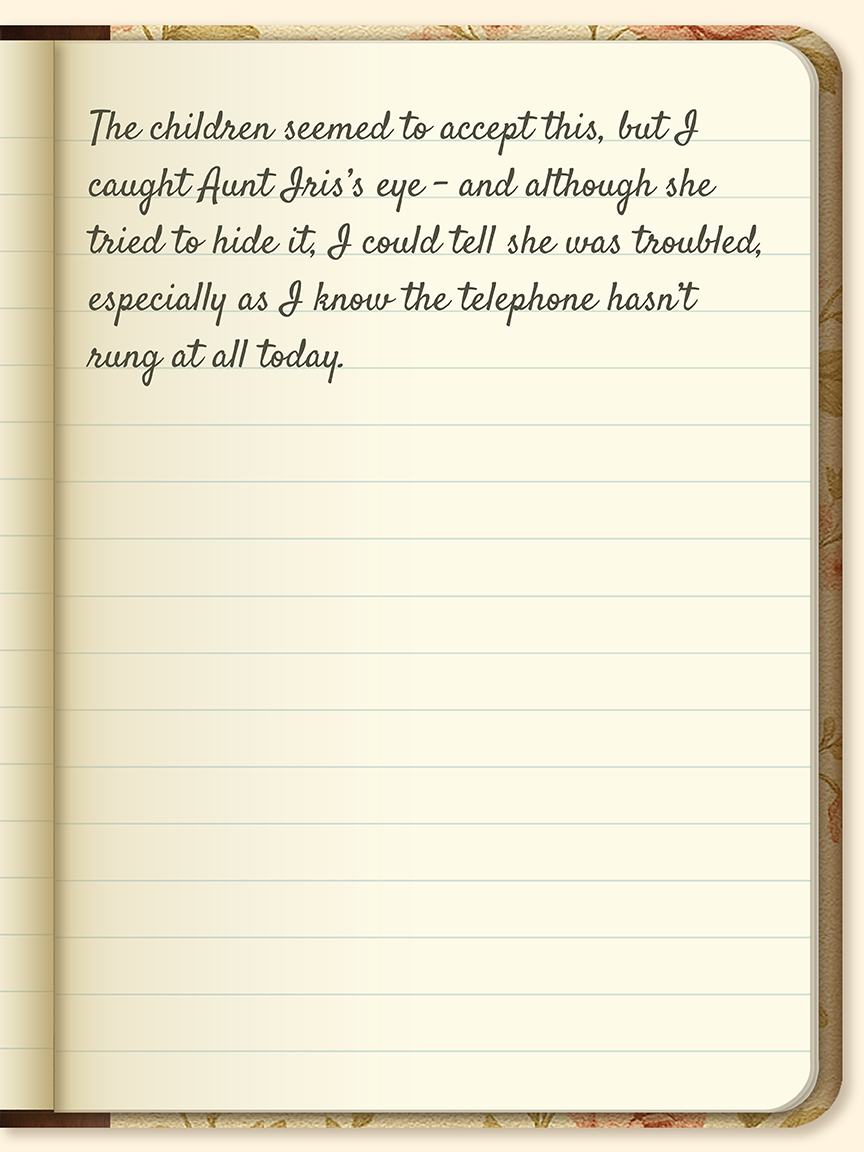 The children seemed to accept this, but I
caught Aunt Iris’s eye – and although she
tried to hide it, I could tell she was troubled,
especially as I know the telephone hasn’t
rung at all today.